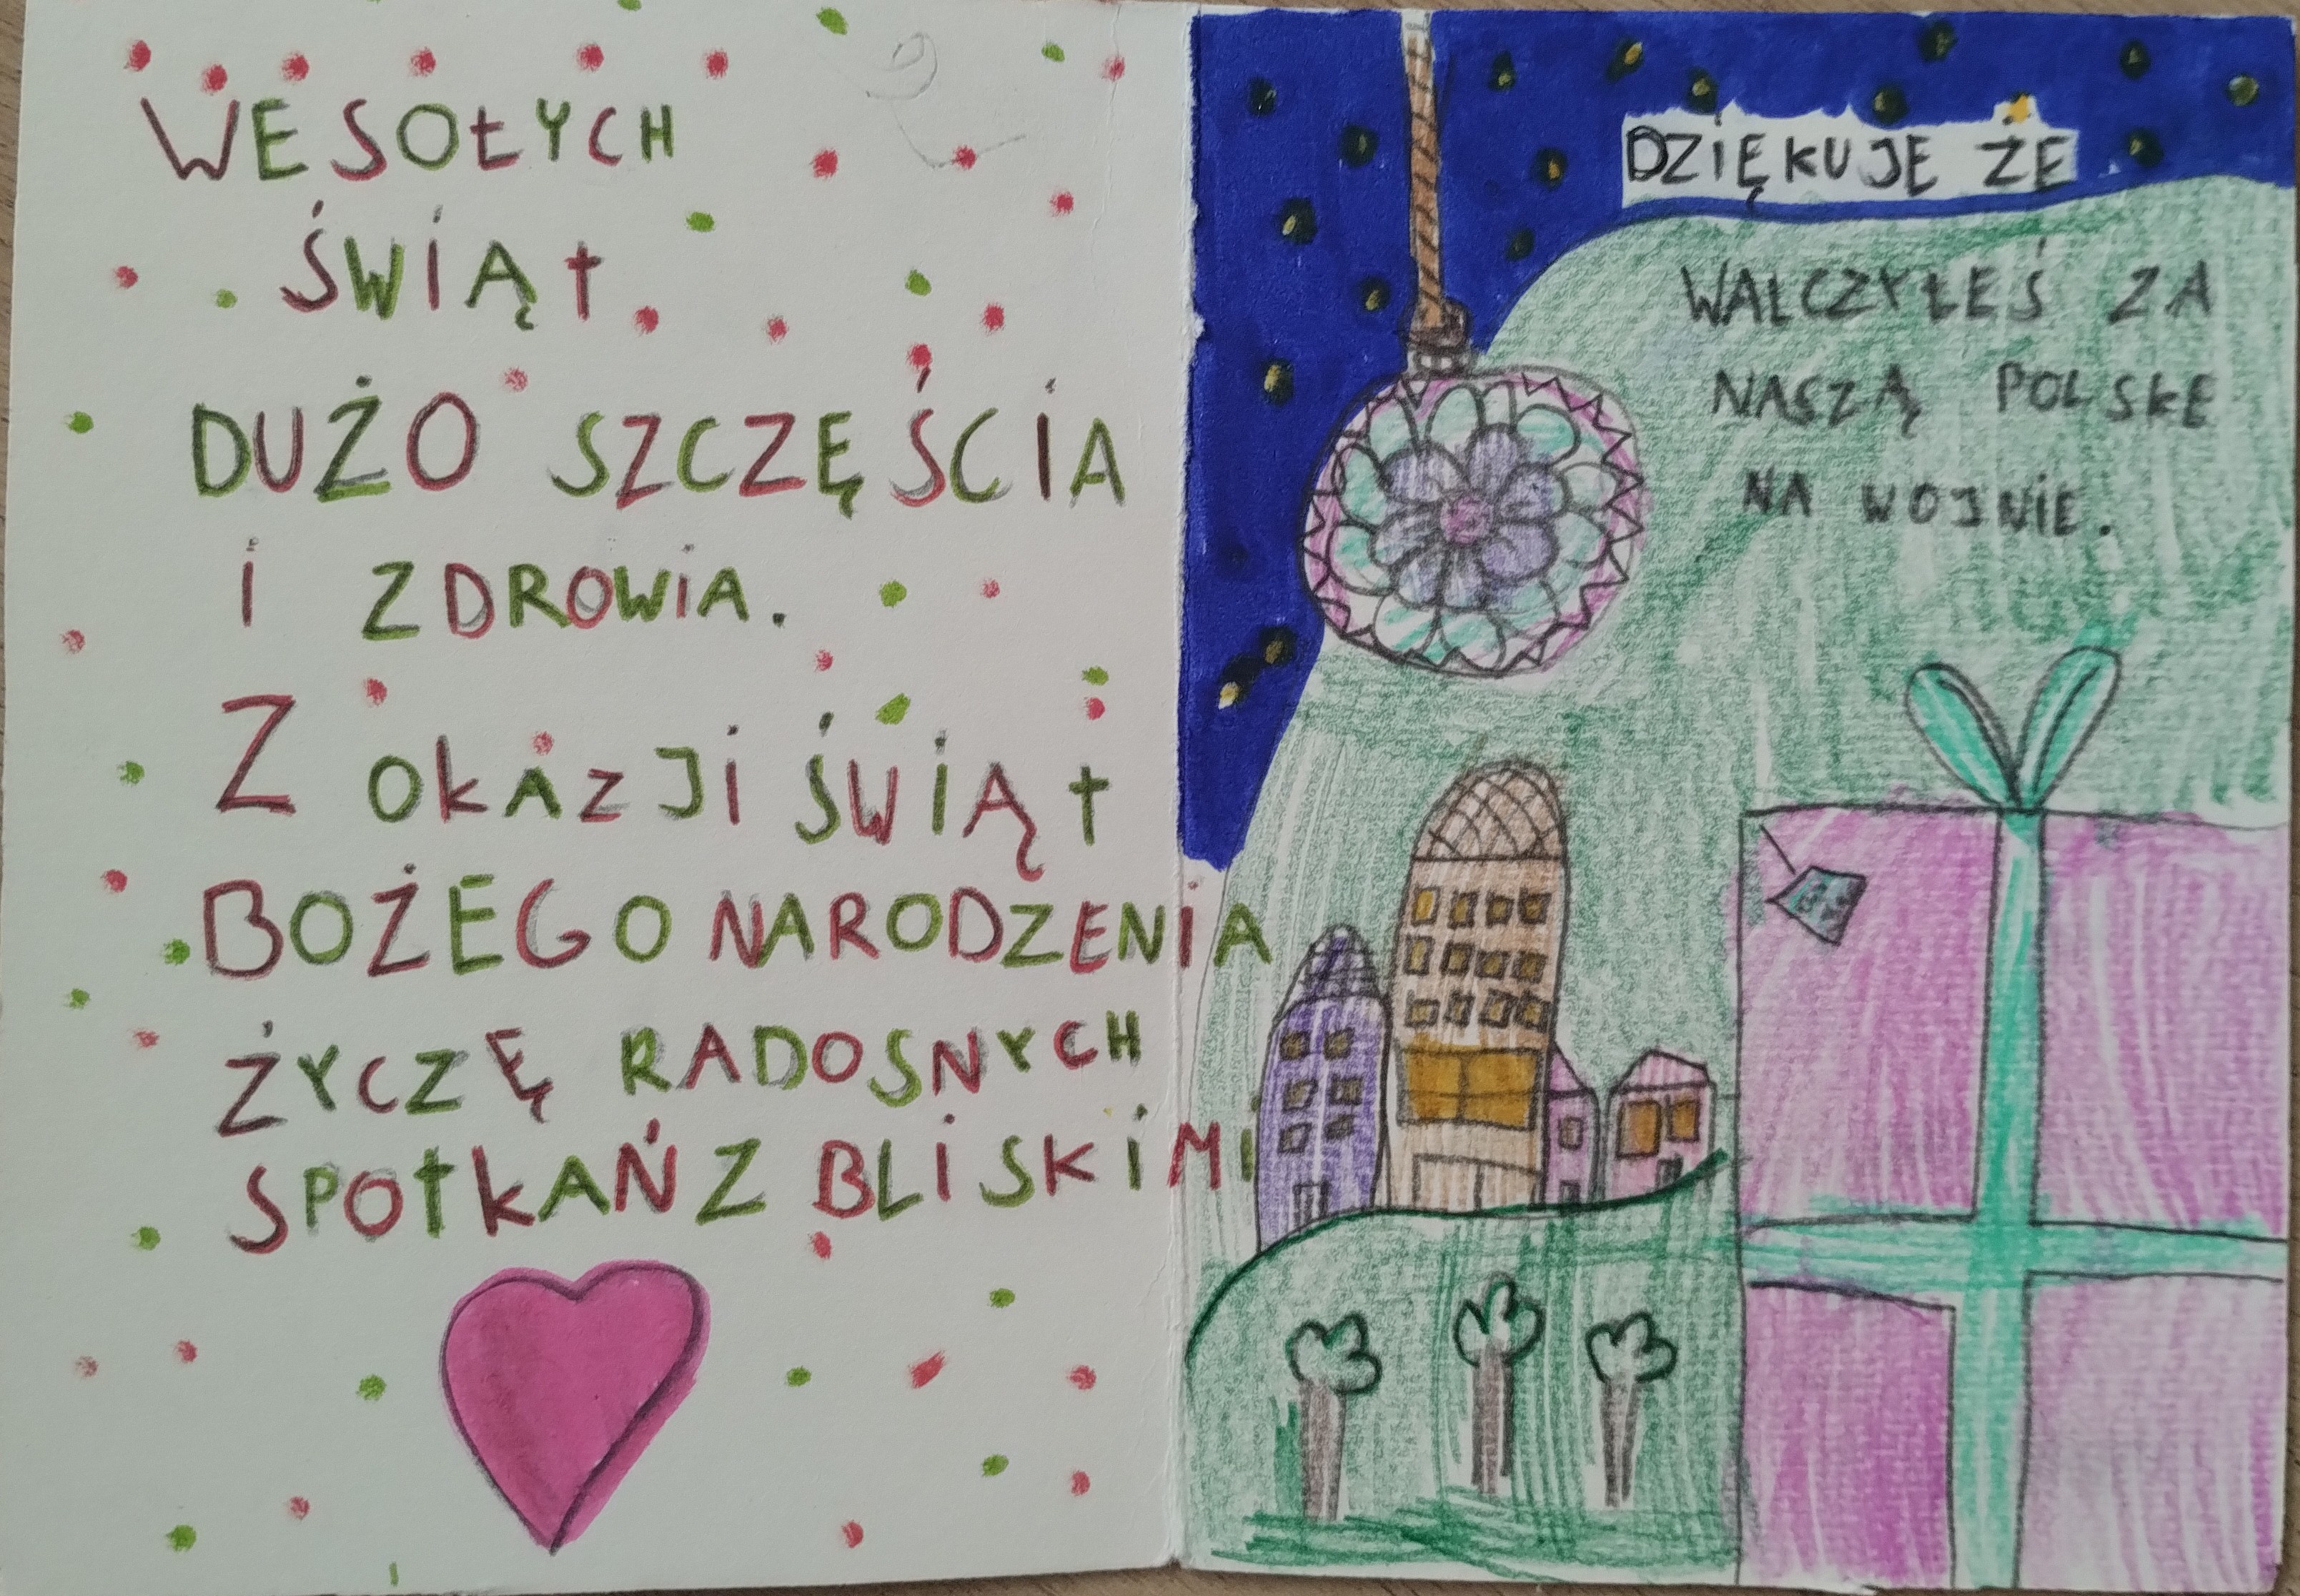 WESOŁYCH
ŚWIĄt
DUŻO SZCZĘŚCIA
i ZDROWiA.
Z OkAZJi ŚWiĄt
BOŻEGO NARODZENiA
ŻYCZĘ RADOSNYCH
SPOtkAŃ Z BLiSKiMi
DZiĘKUJĘ ŻE
WALCZYŁEŚ ZA
NASZĄ POLSKE
NA WOJNiE.